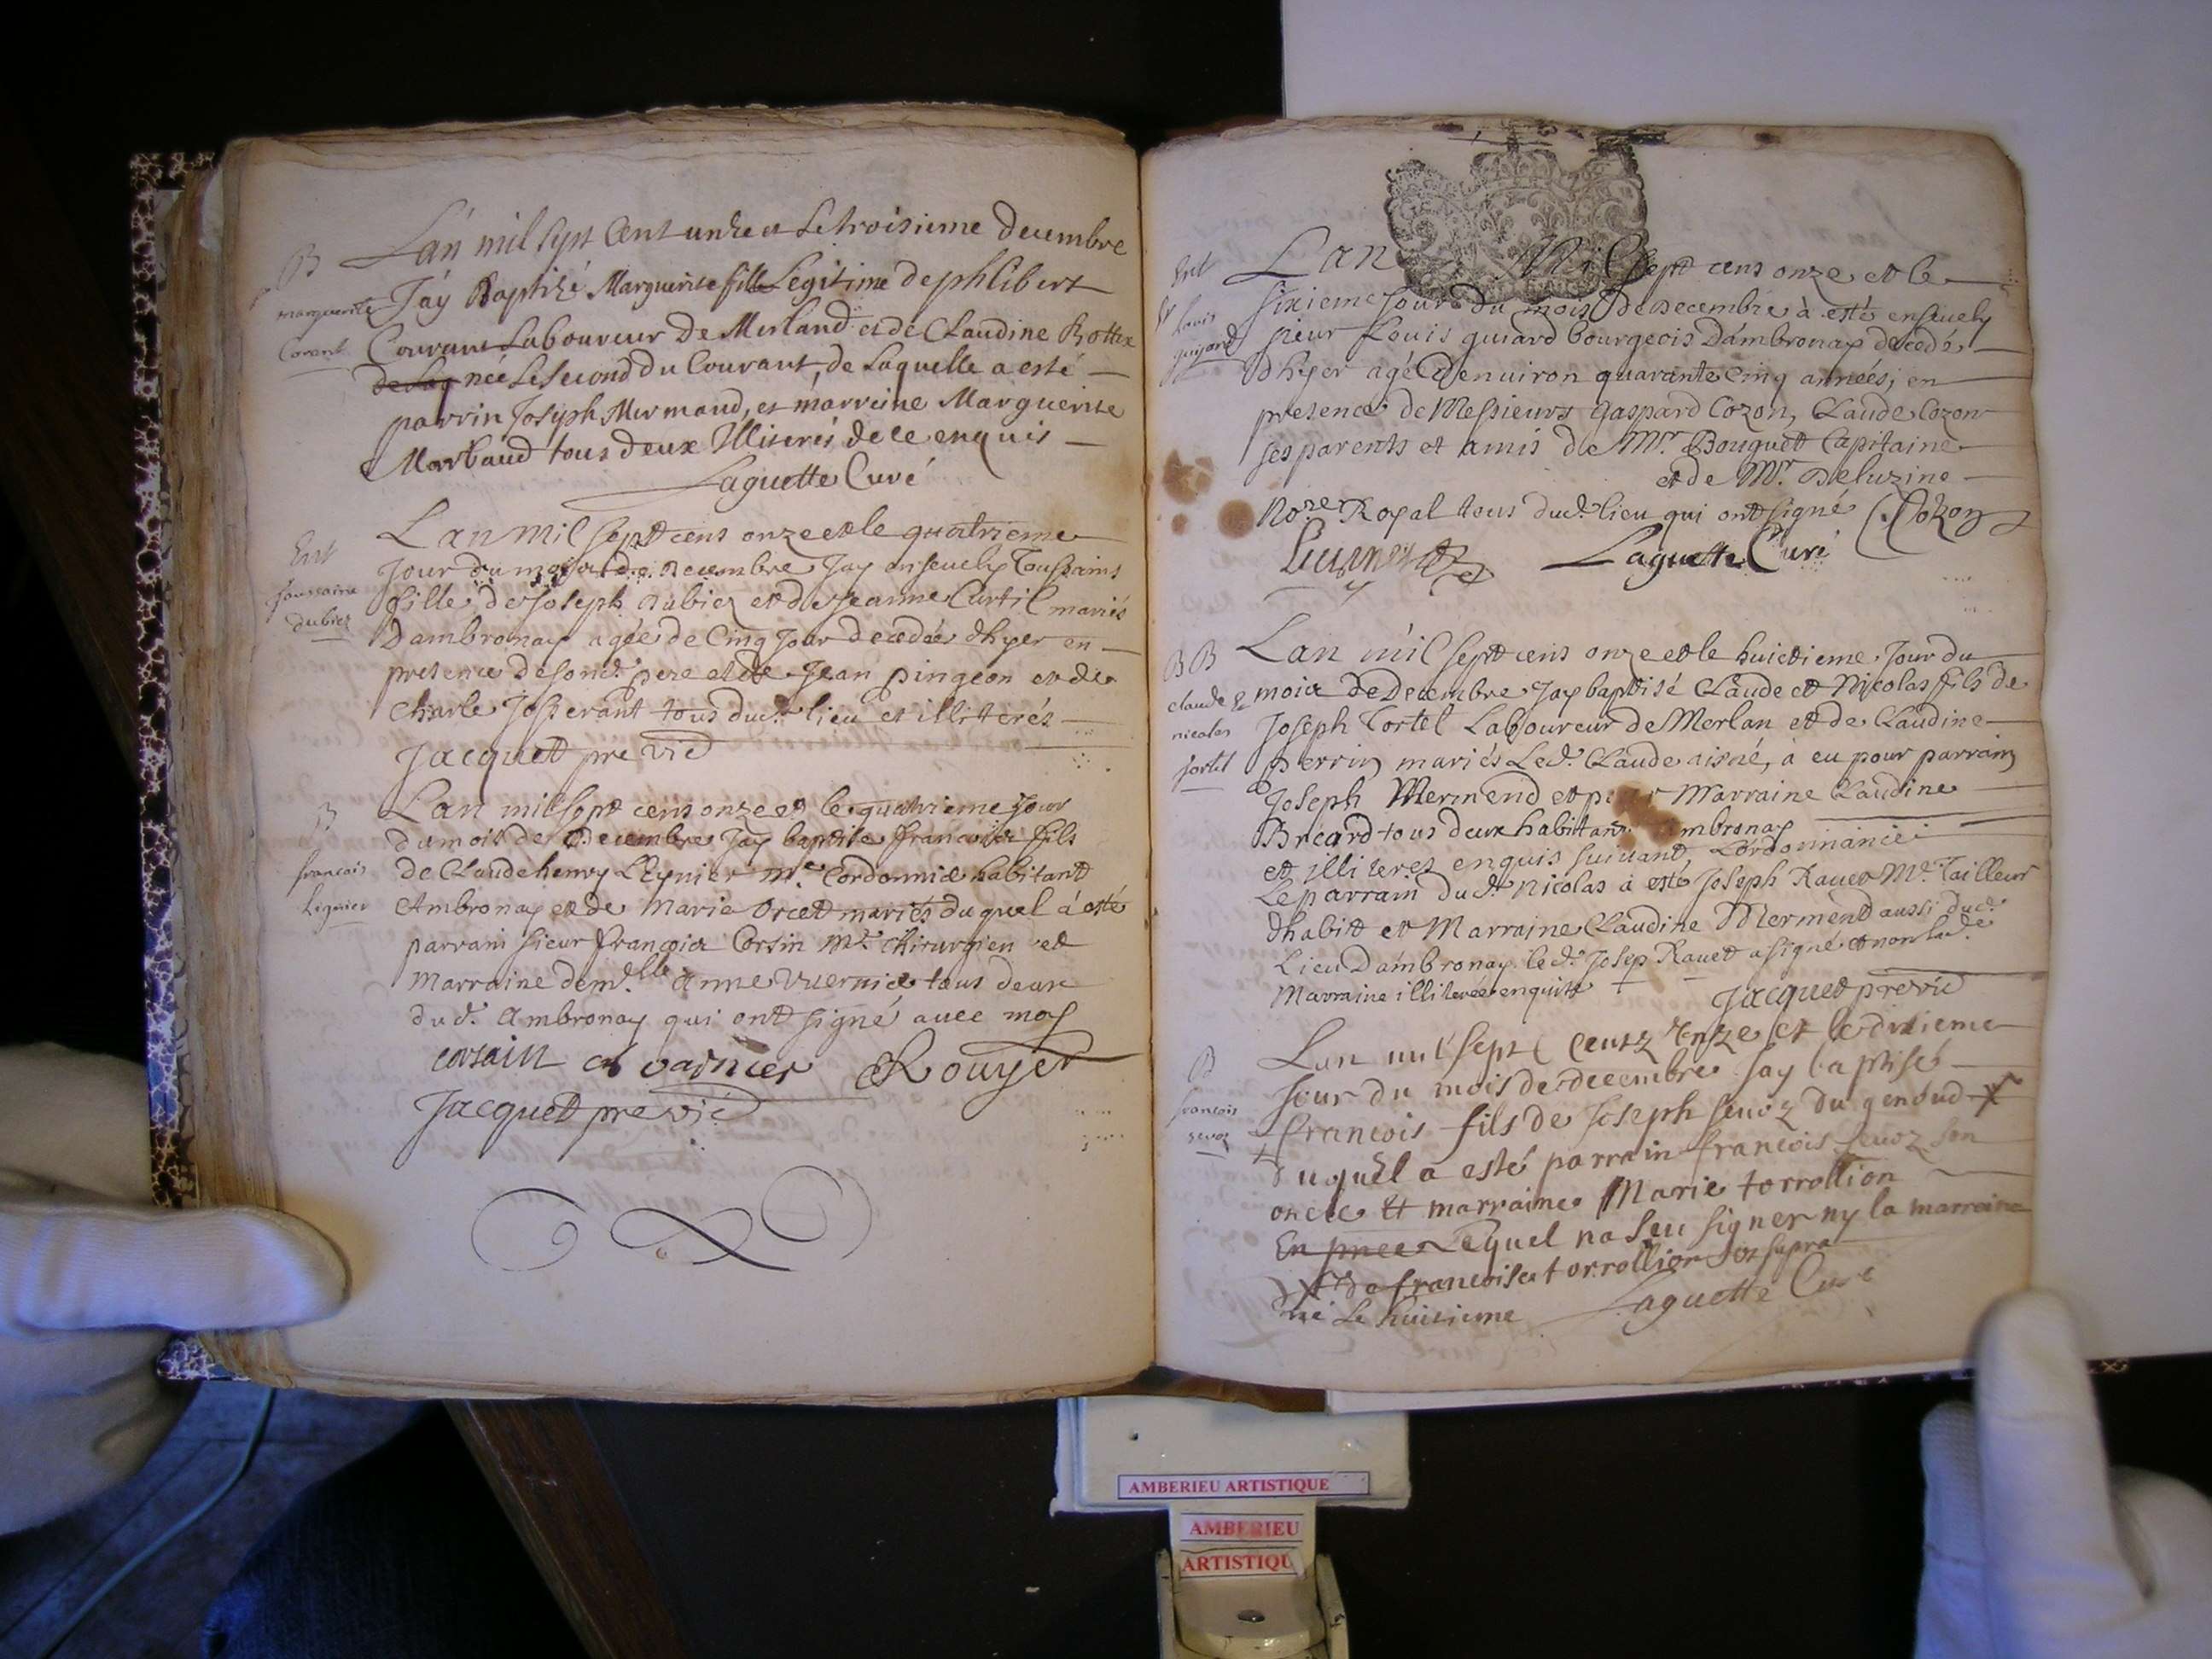 B
marguerite
Corent
Lan mil sept Cent unze et Le troisieme decembre
Jáy Baptizé Marguerite fille Legitime de phlibert
Courant Laboureur De Merland et de Claudine Rottex
née Le Second du Courant, de Laquelle a esté
parrin Joseph Mermand, et marreine Marguerite
Marbaud tous deux Illiterés de ce enquis
Laguette Curé
Ent
toussaine
dubiez
Lan Mil sept cens onze et le quatrieme
Jour du mois de decembre Jay enseuely Toussains
fille de Joseph dubiez et de Jeanne Curtil mariés
Dambronay agée de Cinq Jour decedée dhyer en
presence de sond. pere et de Jean pingeon et de
Charle Josserant tous dud. lieu et illitterés
Jacquet pre vic
B
francois
Lignier
Lan mil sept cens onze et le quatrieme Jour
du mois de Decembre Jay baptise francois fils
de Claude henry Leynier Me Cordonnie habitant
Ambronay et de Marie Orcet mariés du quel á esté
parrain sieur françois Corsin Me. chirurgien et
Marraine demlle. Anne Vuernie tous deux
dud. Ambronay qui ont signé auec moy
corsain a uarnier Rouyer
Jacquet pre vic
Ent
Sr Louis
guiard
Lan Mil sept cens onze et le
sixieme Jour du mois de Decembre à esté enseuely
sieur Louis guiard bourgeois Dámbronay decedé
dhyer agé denuiron quarante Cinq années, en
presence de Messieurs gaspard Cozon, Claude Cozon
ses parents et amis de Mr. Bouguet Capitaine
et de Mr. Deluzine
Nore Royal tous dud. lieu qui ont signé C. Cozon
Laguette Curé
B B
claude &
nicolas
tortel
Lan mil sept cens onze et le huictieme Jour du
mois de Decembre Jay baptisé Claude et Nicolas fils de
Joseph Tortel Laboureur de Merlan et de Claudine
perrin mariés Led. Claude aisné, à eu pour parrain
Joseph Mermend et p r Marraine Claudine
Bricard tous deux habittans mbronay
et illiteres enquis suiuant, Lordonnance
Le parrain dud. Nicolas à esté Joseph Rauet Me. Tailleur
dhabit et Marraine Claudine Merment aussi dud.
Lieu Dambronay. led. Josep Rauet a signé et non lade.
Marraine illiterée enquise
Jacquet pre vic
B
francois
seuoz
Lan mil sept Centz Onze et le dixieme
Jour du mois de decembre Jay baptisé
francois fils de Joseph seuoz du genoud X
duquel a esté parrain francois seuoz son
oncle et marraine Marie torrollion
En pnce Lequel na sceu signer ny la marraine
X et de francoise torrollion ut supra
né Le huitieme Laguette Curé
AMBERIEU ARTISTIQUE
AMBERIEU
ARTISTIQU